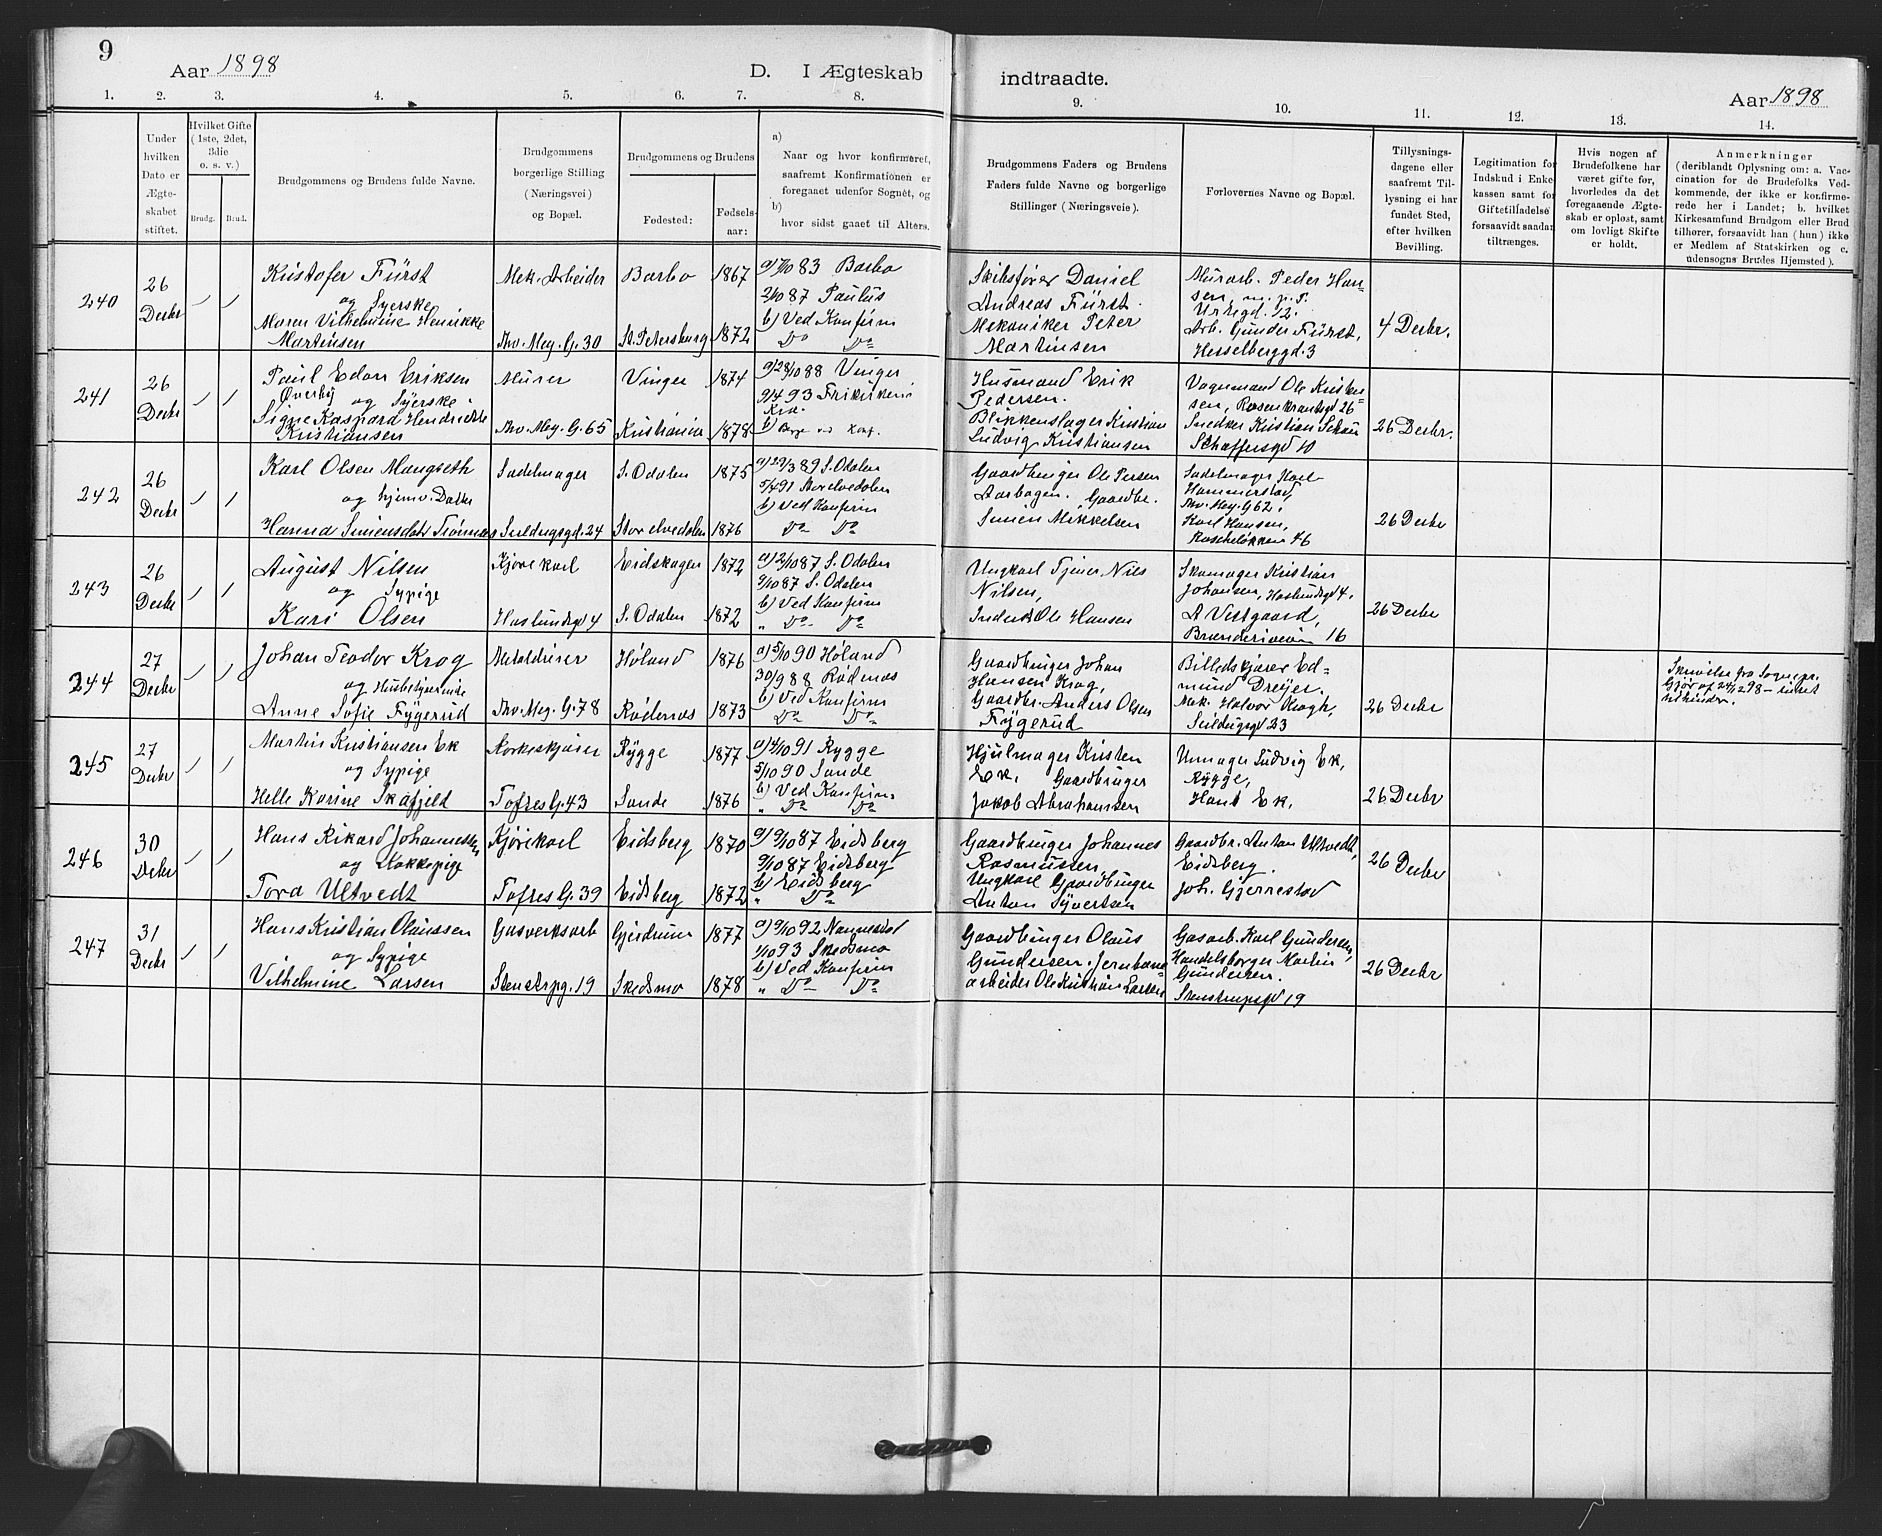 9
Aar 1898
D. I Ægteskab
indtraadte.
Aar 1898
1. 2. 3. 4. 5. 6. 7. 8. 9. 10. 11. 12. 13. 14.
Under
hvilken
Dato er
Ægte-
skabet
stiftet.
Hvilket Gifte
(1ste, 2det,
3die
o. s. v.)
Brudg. Brud.
Brudgommens og Brudens fulde Navne.
Brudgommens
borgerlige Stilling
(Næringsvei)
og Bopæl.
Brudgommens og Brudens
Fødested:
Fødsels-
aar:
a)
Naar og hvor konfirmeret,
saafremt Konfirmationen er
foregaaet udenfor Sognet, og
b)
hvor sidst gaaet til Alters.
Brudgommens Faders og Brudens
Faders fulde Navne og borgerlige
Stillinger (Næringsveie).
Forlovernes Navne og Bopæl.
Tillysnings-
dagene eller
saafremt Til-
lysning ei har
fundet Sted,
efter hvilken
Bevilling.
Legitimation for
Indskud i Enke-
kassen samt for
Giftetilladelse
forsaavidt saadan
tiltrænges.
Hvis nogen af
Brudefolkene har
været gifte før,
hvorledes da det
foregaaende Ægte-
skab er opløst, samt
om lovligt Skifte
er holdt.
Anmerkninger
(deriblandt Oplysning om: a. Vac-
cination for de Brudefolks Ved-
kommende, der ikke er konfirme-
rede her i Landet; b. hvilket
Kirkesamfund Brudgom eller Brud
tilhører, forsaavidt han (hun) ikke
er Medlem af Statskirken og c.
udensogns Brudes Hjemsted).
240
26
Decbr
Kristofer Fürst
og Syerske
Maren Vilhelmine Henrikke
Martinsen
Mek. Arbeider
Thv. Mey. G. 30
Barbo
St. Petersburg
1867
1872
a) 7/10 83 Barbo
2/10 87 Paulus
b) Ved Konfirm
Do Do
Skibsfører Daniel
Andreas Fürst.
Mekaniker Peter
Martinsen
Murarb. Peder Han-
sen,
Urtegd. 12.
Arb. Gunder Fürst,
Hesselberggd. 3
4 Decbr.
241
26
Decbr
Paul Edon Eriksen
Øverby
og Syerske
Signe Kaspara Hendrikke
Kristiansen
Murer
Thv. Mey. G. 65
Vinger
Kristiania
1874
1878
a) 28/10 88 Vinger
9/4 93 Frikirken i
Kra.
b) Begge ved Konf.
Husmand Erik
Pedersen.
Blikkenslager Kristian
Ludvig Kristiansen
Vognmand Ole Kristen-
sen, Rosenkrantzgd 26
Snedker Kristian Schau
Schaffersgd 10
26 Decbr.
242
26
Decbr
Karl Olsen Mangseth
og hjemv. Datter
Hanna Simensdatr
Sadelmager
Seildugsgd. 24
S. Odalen
Stor elvedalen
1875
1876
a) 29/3 89 S. Odalen
5/4 91 Storelvedalen
b) Ved Konfirm
Do Do
Gaardbruger Ole Persen
Aarbogen. Gaardbr.
Simen Mikkelsen
Sadelmager Karl
Hammerstad,
Thv. Mey. G 62.
Karl Hansen,
Rosteløkken 46
26 Decbr
243
26
Decbr
August Nilsen
og Sypige
Kari Olsen
Kjørekarl
Haslundsgd 4
Eidskogen
S. Odalen
1872
1872
a) 2/10 87 S. Odalen
9/10 87 S. Odalen
b) Ved Konfirm
" Do Do
Ungkarl Tjener Nils
Nilsen,
Inderst Ole Hansen
Skomager Kristian
Johansen, Haslundsgd 4.
A Vestgaard,
Brænderiveien 16
26 Decbr
244
27
Decbr
Johan Teodor Krog
og Husbestyrerinde
Anne Sofie Fygerud
Metaldrier
Thv. Mey. G. 78
Høland
Rødenæs
1876
1873
a) 5/10 90 Høland
30/9 88 Rødenæs
b) Ved Konfirm
Do Do
Gaardbruger Johan
Hansen Krog,
Gaardbr. Anders Olsen
Fygerud
Billedskjærer Ed-
mund Dreyer.
Mek. Halvor Krogh,
Seildugsgd 23
26 Decbr
Skrivelse fra Sognepr.
Gjør af 24/12 98 – intet
tilhinder.
245
27
Decbr
Martin Kristiansen Ek
og Sypige
Helle Karine Skafjeld
Korkeskjærer
Toftes G. 43
Rygge
Sande
1877
1876
a) 4/10 91 Rygge
5/10 90 Sande
b) Ved Konfirm.
" Do Do
Hjulmager Kristen
Ek. Gaardbruger
Jakob Abrahamsen
Urmager Ludvig Ek,
Rygge,
Hans Ek.
26 Decbr
246
30
Decbr
Hans Rikard Johannessen
og Kokkepige
Tora Ultvedt
Kjørekarl
Toftes G. 39
Eidsberg
Eidsberg
1870
1872
a) 9/10 87 Eidsberg
9/10 87 Eidsberg
b) Eidsberg
" Do
Gaardbruger Johannes
Rasmussen
Ungkarl Gaardbruger
Anton Syvertsen
Gaardbr. Anton Ultvedt,
Eidsberg.
Joh. Gjernestad
26 Decbr
247
31
Decbr
Hans Kristian Olaussen
og Sypige
Vilhelmine Larsen
Gasverksarb
Stenstrpg. 19
Gjerdrum
Skedsmo
1877
1878
a) 9/10 92 Nannestad
1/10 93 Skedsmo
b) Ved Konfirm
" Do Do
Gaardbruger Olaus
Gundersen. Jernbane-
arbeider Ole Kristian Larsen
Gasarb. Karl Gundersen,
Handelsborger Martin
Gundersen.
Stenstrupsgd 19
26 Decbr